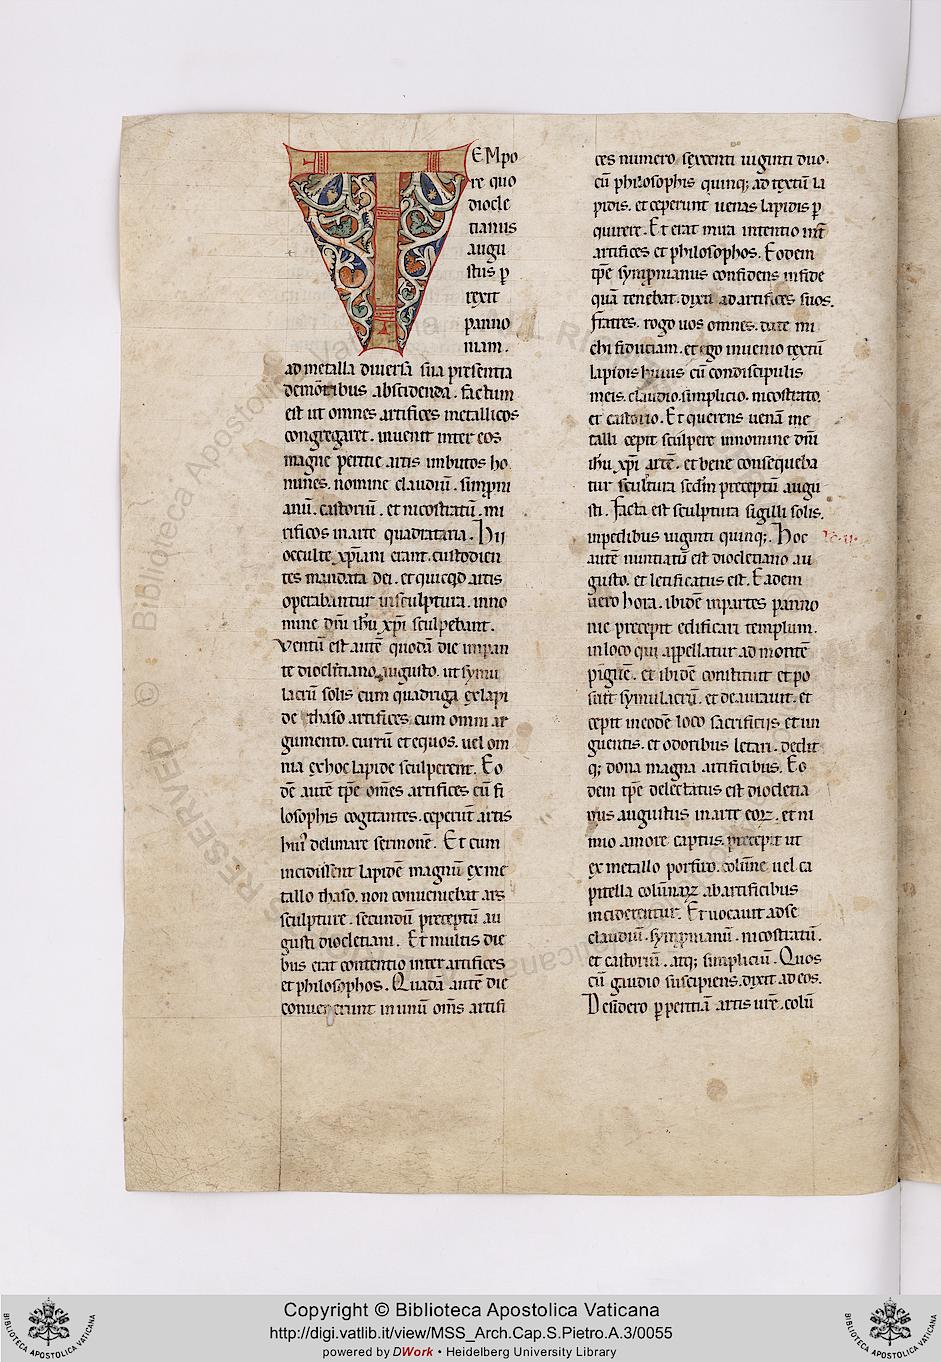 TEMpo
re quo
diocle
tianus
augu
stus ꝑ
rexit
panno
niam.
ad metalla diuersa sua presentia
demōtibus abscidenda. factum
est ut omnes artifices metallicos
congregaret. inuenit inter eos
magne peritie artis imbutos ho
mines. nomine claudiū. simpm
anū. castoriū. et nicostratū. mi
rificos inarte quadrataria. Hii
occulte xp̄iani erant. custodien
tes mandata dei. et quicqd artis
operabantur insculptura. inno
mine dn̄i ih̄u xp̄i sculpebant.
Ventū est autē quodā die impan
te diocletiano augusto. ut symu
lacrū solis cum quadriga ex lapi
de thaso artifices. cum omni ar
gumento. currū et equos. uel om
nia ex hoc lapide sculperent. Eo
dē autē tp̄e om̄es artifices cū fi
losophis cogitantes. ceperūt artis
hui' delimare sermonē. Et cum
incidissent lapidē magnū ex me
tallo thaso. non conueniebat ars
sculpture. secundū preceptū au
gusti diocletiani. Et multis die
bus erat contentio inter artifices
et philosophos. Quadā autē die
conuenerunt in unū om̄s artifi
ces numero sexcenti uiginti duo.
cū philosophis quinq; ad textū la
pidis. et ceperunt uenas lapidis ꝑ
quirere. Et erat mira intentio int̄
artifices et philosophos. Eodem
tp̄e symprnianus confidens in fide
quā tenebat. dixit ad artifices suos.
fratres. rogo uos omnes. date mi
chi fiduciam. et ego inuenio textū
lapidis huius cū condiscipulis
meis. claudio. simplicio. nicostrato.
et castorio. Et querens uenā me
talli cepit sculpere in nomine dn̄i
ih̄u xp̄i artē. et bene consequeba
tur sculptura scd̄m preceptū augu
sti. facta est sculptura sigilli solis.
inpedibus uiginti quinq;. Hoc
autē nuntiatū est diocletiano au
gusto. et letificatus est. Eadem
uero hora. ibidē inpartes panno
nie precepit edificari templum.
in loco qui appellatur ad montē
pinguē. et ibidē constituit et po
suit symulacrū. et deaurauit. et
cepit ineodē loco sacrificiis et un
guentis. et odoribus letari. dedit
q; dona magna artificibus. Eo
dem tp̄e delectatus est diocletia
nus augustus in arte eoꝝ. et ni
mio amore captus. precepit ut
ex metallo porfiro. colūne uel ca
pitella colūnaꝝ ab artificibus
inciderentur. Et uocauit ad se
claudiū. symprnianū. nicostratū.
et castoriū. atq; simpliciū. Quos
cū gaudio suscipiens. dixit ad eos.
Desidero ꝑ peritiā artis ur̄e. colū
© Biblioteca Apostolica Vaticana
ALL RIGHTS RESERVED
BIBLIOTECA APOSTOLICA VATICANA
Copyright © Biblioteca Apostolica Vaticana
http://digi.vatlib.it/view/MSS_Arch.Cap.S.Pietro.A.3/0055
powered by DWork • Heidelberg University Library
BIBLIOTECA APOSTOLICA VATICANA